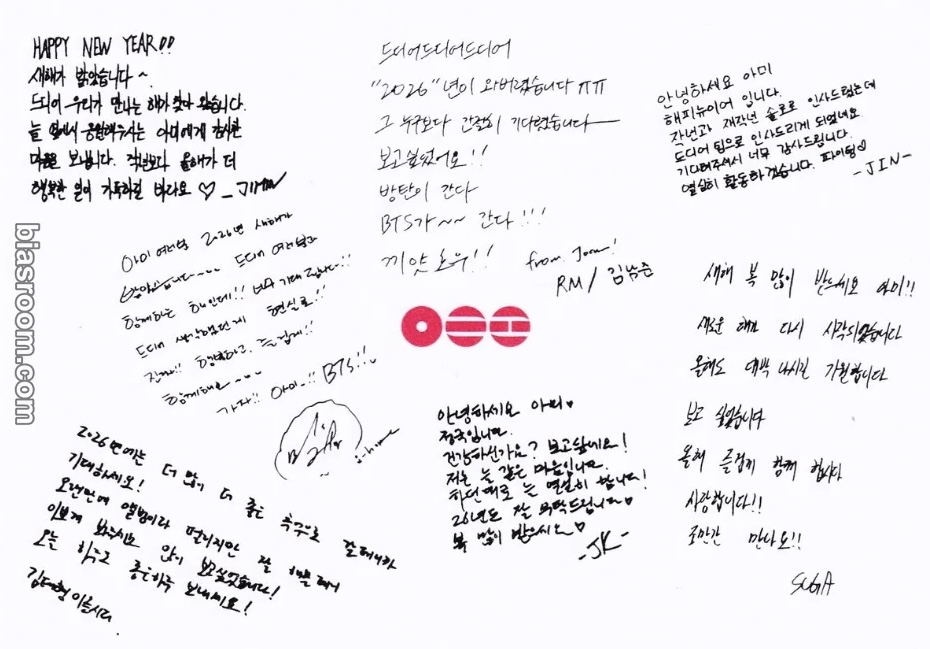 HAPPY NEW YEAR!!
새해가 밝았습니다~
드디어 우리가 만나는 해가 찾아왔습니다.
늘 옆에서 응원해주시는 아미에게 감사한
마음을 보냅니다. 작년보다 올해가 더
행복한 일이 가득하길 바라요 ♡
_JIMIN
드디어드디어드디어
"2026"년이 와버렸습니다 ㅠㅠ
그 누구보다 간절히 기다렸습니다
보고싶었어요!!
방탄이 간다
BTS가~~ 간다!!!
끼얏호우!!
from Joon!
RM / 김남준
안녕하세요 아미
해피뉴이어 입니다.
작년과 재작년 솔로로 인사드렸는데
드디어 팀으로 인사드리게 되었네요
기다려주셔서 너무 감사드립니다.
열심히 활동하겠습니다. 파이팅♡
-JIN-
아미 여러분 2026년 새해가
밝았습니다~~~ 드디어 여러분과
함께하는 해인데!! 너무 기대됩니다!!
드디어 생각했던게 현실로!!
진짜!! 행복하고, 즐겁게!!
함께해요~~~
가자!! 아미..!! BTS!!
새해 복 많이 받으세요 아미!!
새로운 해가 다시 시작되었습니다
올해도 대박 나시길 기원합니다
보고 싶었습니다
올해 즐겁게 함께 합시다
사랑합니다!!
조만간 만나요!!
SUGA
안녕하세요 아미♥
정국입니다.
건강하신가요? 보고싶네요!
저는 늘 같은 마음입니다.
하던대로 늘 열심히 합니다!
26년도 잘 부탁드립니다♥
복 많이 받으시오♥
-JK-
2026년에는 더 많이 더 좋은 추구로 갈테니까
기대하세요!
오랜만에 앨범이라 떨리지만 잘 해볼테니
이쁘게 봐주시요 많이 보고싶었습니다!
오늘 하루도 좋은하루 보내세요!
김태형 이올시다.
biasroom.com